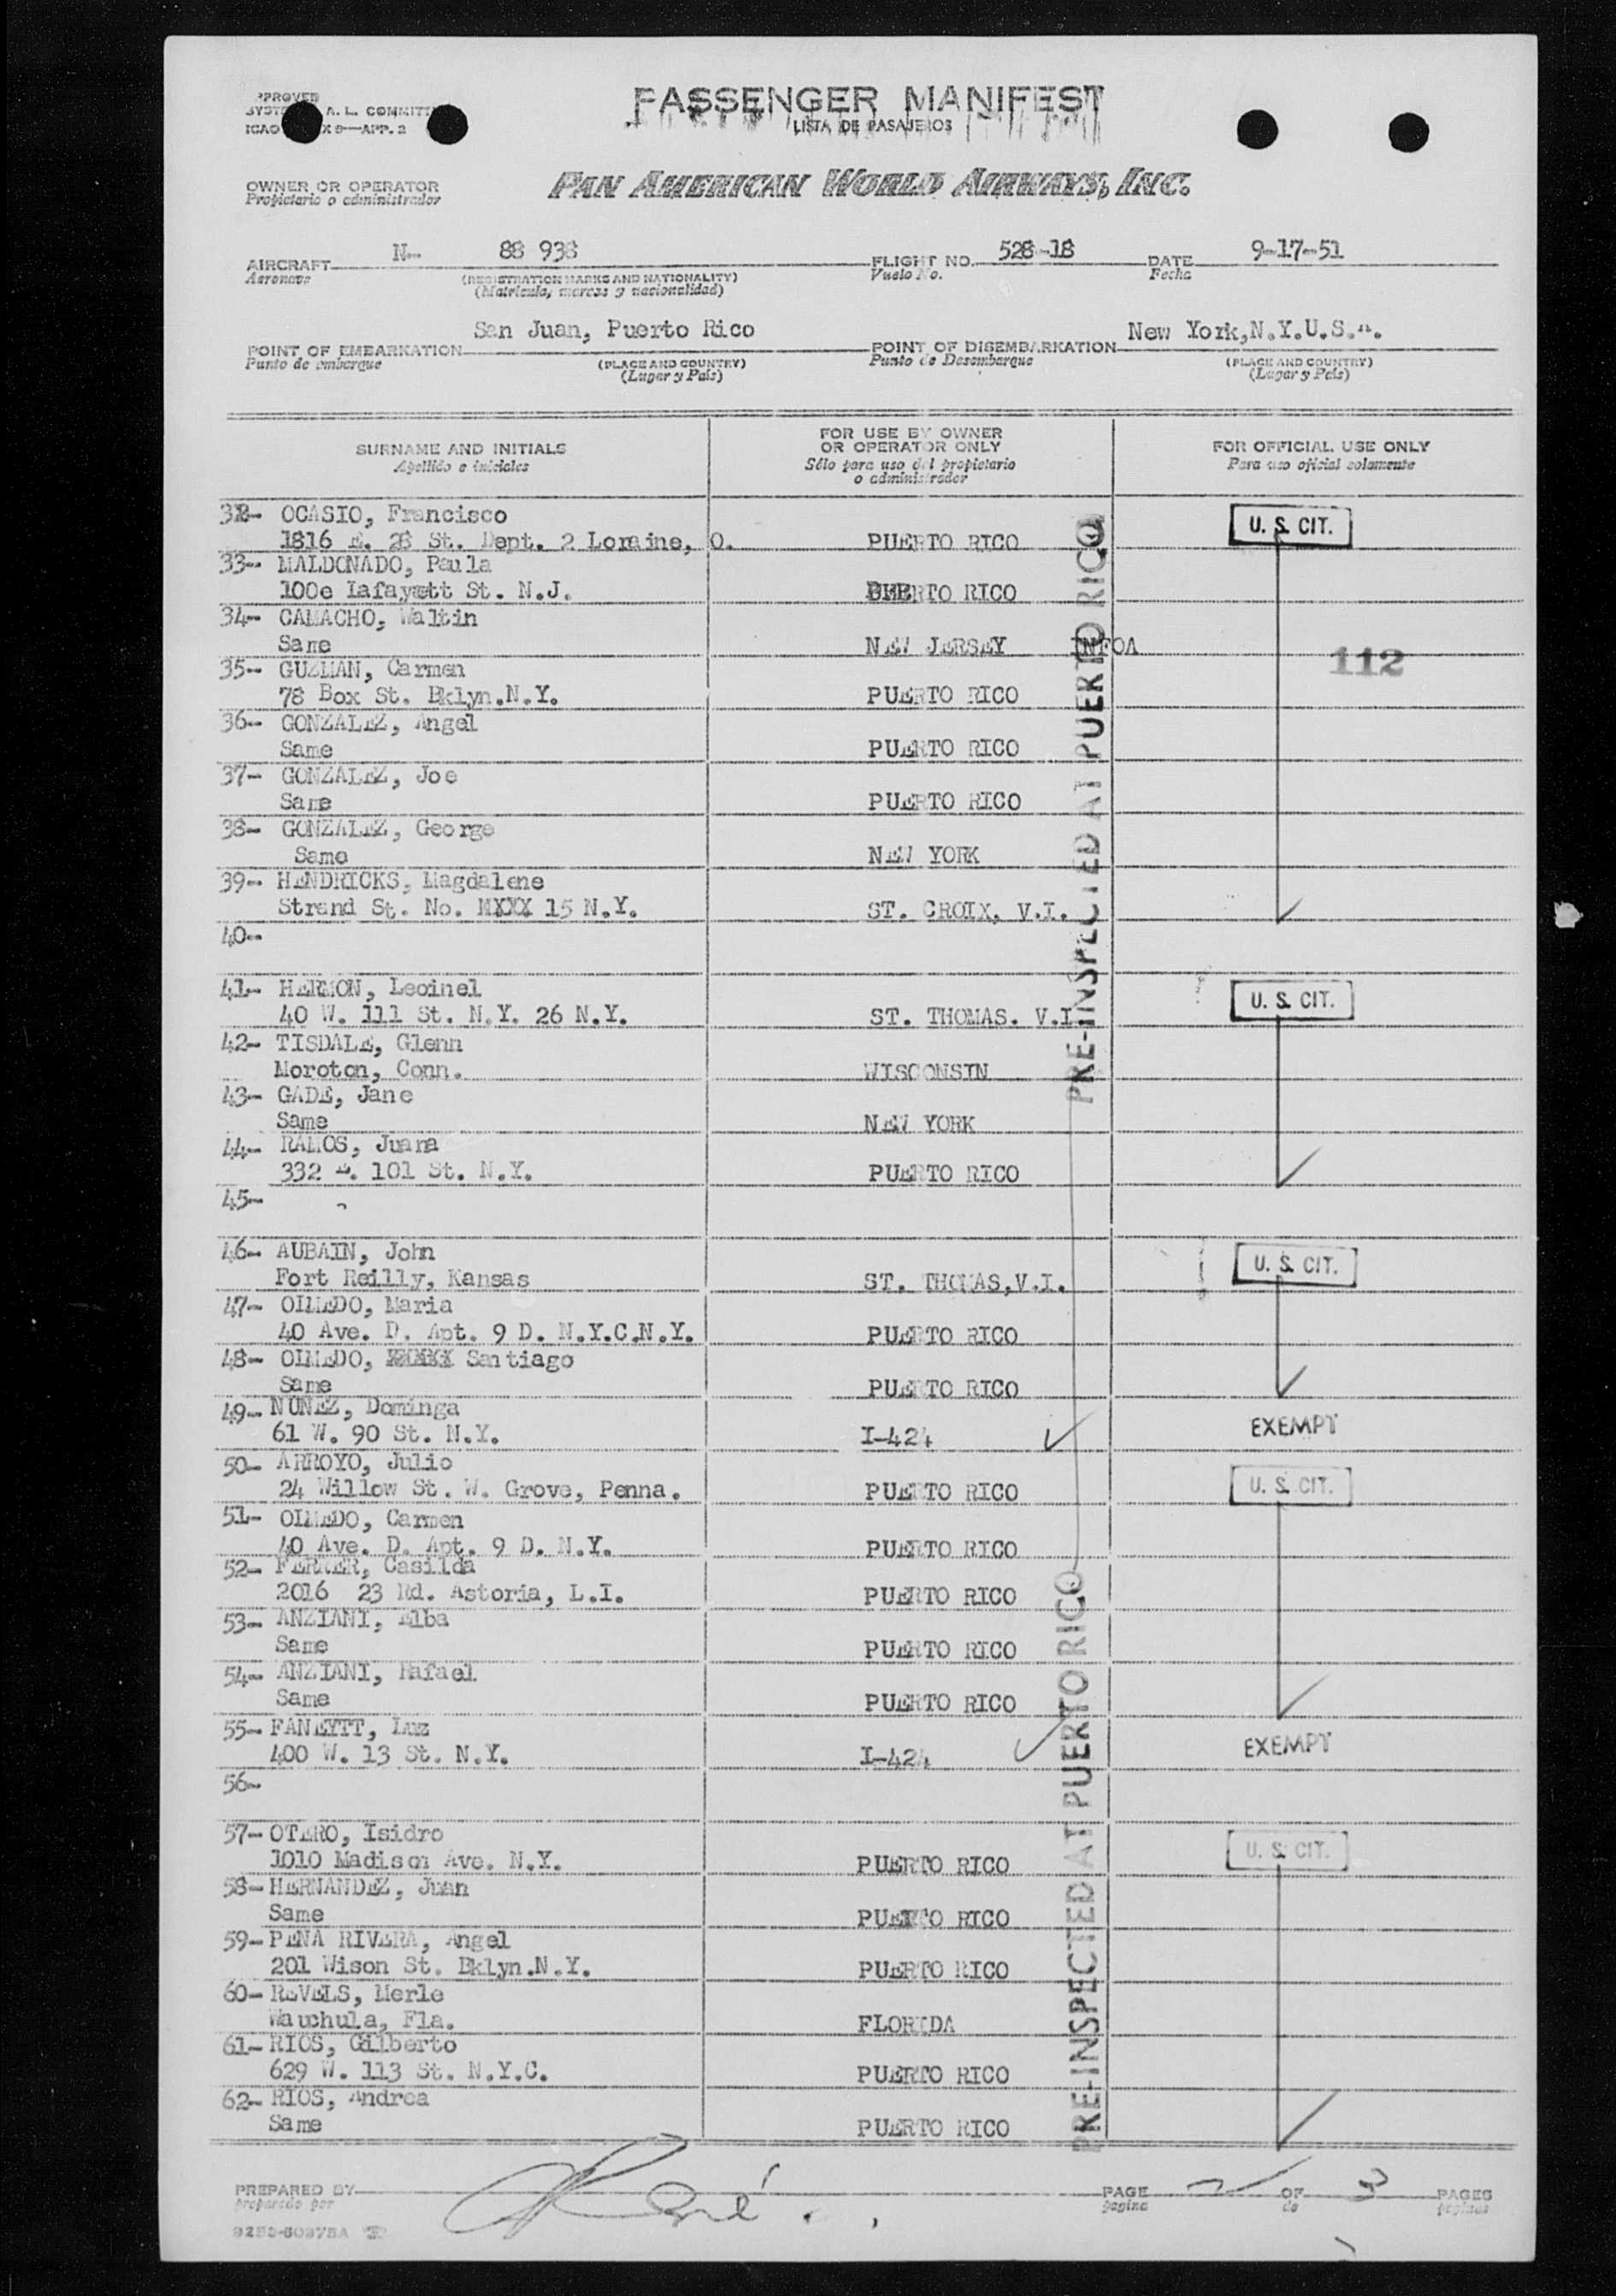 PASSENGER MANIFEST
LISTA DE PASAJEROS
OWNER OR OPERATOR
Propietario o administrador
PAN AMERICAN WORLD AIRWAYS, INC.
AIRCRAFT N- 88 938 FLIGHT NO. 528-18 DATE 9-17-51
Aeronave (REGISTRATION MARKS AND NATIONALITY) Vuelo No. Fecha
(Matrícula, marcas y nacionalidad)
POINT OF EMBARKATION San Juan, Puerto Rico POINT OF DISEMBARKATION New York,N.Y.U.S.A.
Punto de embarque (PLACE AND COUNTRY) Punto de Desembarque (PLACE AND COUNTRY)
(Lugar y País) (Lugar y País)
SURNAME AND INITIALS FOR USE BY OWNER OR OPERATOR ONLY FOR OFFICIAL USE ONLY
Apellido e iniciales Sólo para uso del propietario o administrador Para uso oficial solamente
32- OCASIO, Francisco U. S. CIT.
1816 E. 28 St. Dept. 2 Loraine, O. PUERTO RICO
33- MALDONADO, Paula
100e Lafayett St. N.J. PUERTO RICO
34- CAMACHO, Waltin
Same NEW JERSEY INFOA
112
35- GUZMAN, Carmen
78 Box St. Bklyn.N.Y. PUERTO RICO
36- GONZALEZ, Angel
Same PUERTO RICO
37- GONZALEZ, Joe
Same PUERTO RICO
38- GONZALEZ, George
Same NEW YORK
39- HENDRICKS, Magdalene
Strand St. No. MXXX 15 N.Y. ST. CROIX, V.I.
40-
PRE-INSPECTED AT PUERTO RICO
41- HERMON, Leoinel U. S. CIT.
40 W. 111 St. N.Y. 26 N.Y. ST. THOMAS. V.I.
42- TISDALE, Glenn
Moroton, Conn. WISCONSIN
43- GADE, Jane
Same NEW YORK
44- RAMOS, Juana
332 E. 101 St. N.Y. PUERTO RICO
45-
46- AUBAIN, John U. S. CIT.
Fort Reilly, Kansas ST. THOMAS,V.I.
47- OLMEDO, Maria
40 Ave. D. Apt. 9 D. N.Y.C.N.Y. PUERTO RICO
48- OLMEDO, Santiago
Same PUERTO RICO
49- NUNEZ, Dominga EXEMPT
61 W. 90 St. N.Y. I-424
50- ARROYO, Julio U. S. CIT.
24 Willow St. W. Grove, Penna. PUERTO RICO
51- OLMEDO, Carmen
40 Ave. D. Apt. 9 D. N.Y. PUERTO RICO
52- FERRER, Casilda
2016 23 Rd. Astoria, L.I. PUERTO RICO
53- ANZIANI, Elba
Same PUERTO RICO
54- ANZIANI, Rafael
Same PUERTO RICO
55- FANEYTT, Luz EXEMPT
400 W. 13 St. N.Y. I-424
56-
57- OTERO, Isidro U. S. CIT.
1010 Madison Ave. N.Y. PUERTO RICO
58- HERNANDEZ, Juan
Same PUERTO RICO
59- PENA RIVERA, Angel
201 Wison St. Bklyn.N.Y. PUERTO RICO
60- REVELS, Merle
Wauchula, Fla. FLORIDA
61- RIOS, Gilberto
629 W. 113 St. N.Y.C. PUERTO RICO
62- RIOS, Andrea
Same PUERTO RICO
PRE-INSPECTED AT PUERTO RICO
PREPARED BY PAGE 2 OF 3 PAGES
preparado por página de páginas